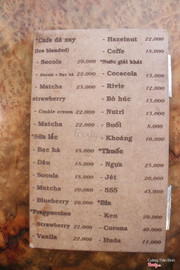 *Cafe đá xay
(Ice blended)
- Socola 20,000
- Socola + Bạc hà 22,000
- Matcha 23,000
strawberry
- Cookie cream 22,000
- Matcha 22,000
*Sữa lắc
- Bạc hà 15,000
- Dâu 15,000
- Socola 15,000
- Matcha 20,000
- Blueberry 20,000
*Frappuccino
- Strawberry 22,000
- Vanilla 22,000
- Hazelnut 22,000
- Coffe 19,000
*Nước giải khát
- Cocacola 13,000
- Rivie 12,000
- Bò húc 15,000
- Nutri 13,000
- Suối 8,000
- Khoáng 10,000
*Thuốc
- Ngựa 25,000
- Jét 20,000
- 555 45,000
*Bia
- Ken 20,000
- Corona 40,000
- Huda 15,000